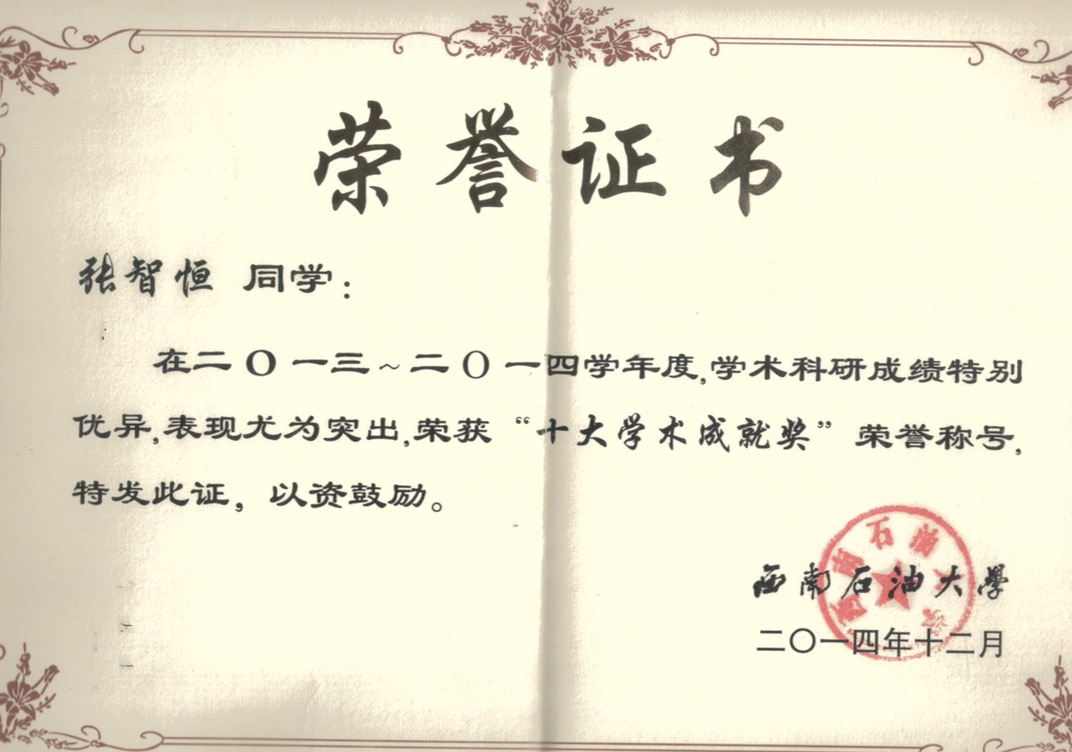 荣誉证书
张智恒 同学：
在二〇一三~二〇一四学年度,学术科研成绩特别
优异,表现尤为突出,荣获“十大学术成就奖”荣誉称号,
特发此证，以资鼓励。
西南石油大学
西南石油大学
二〇一四年十二月